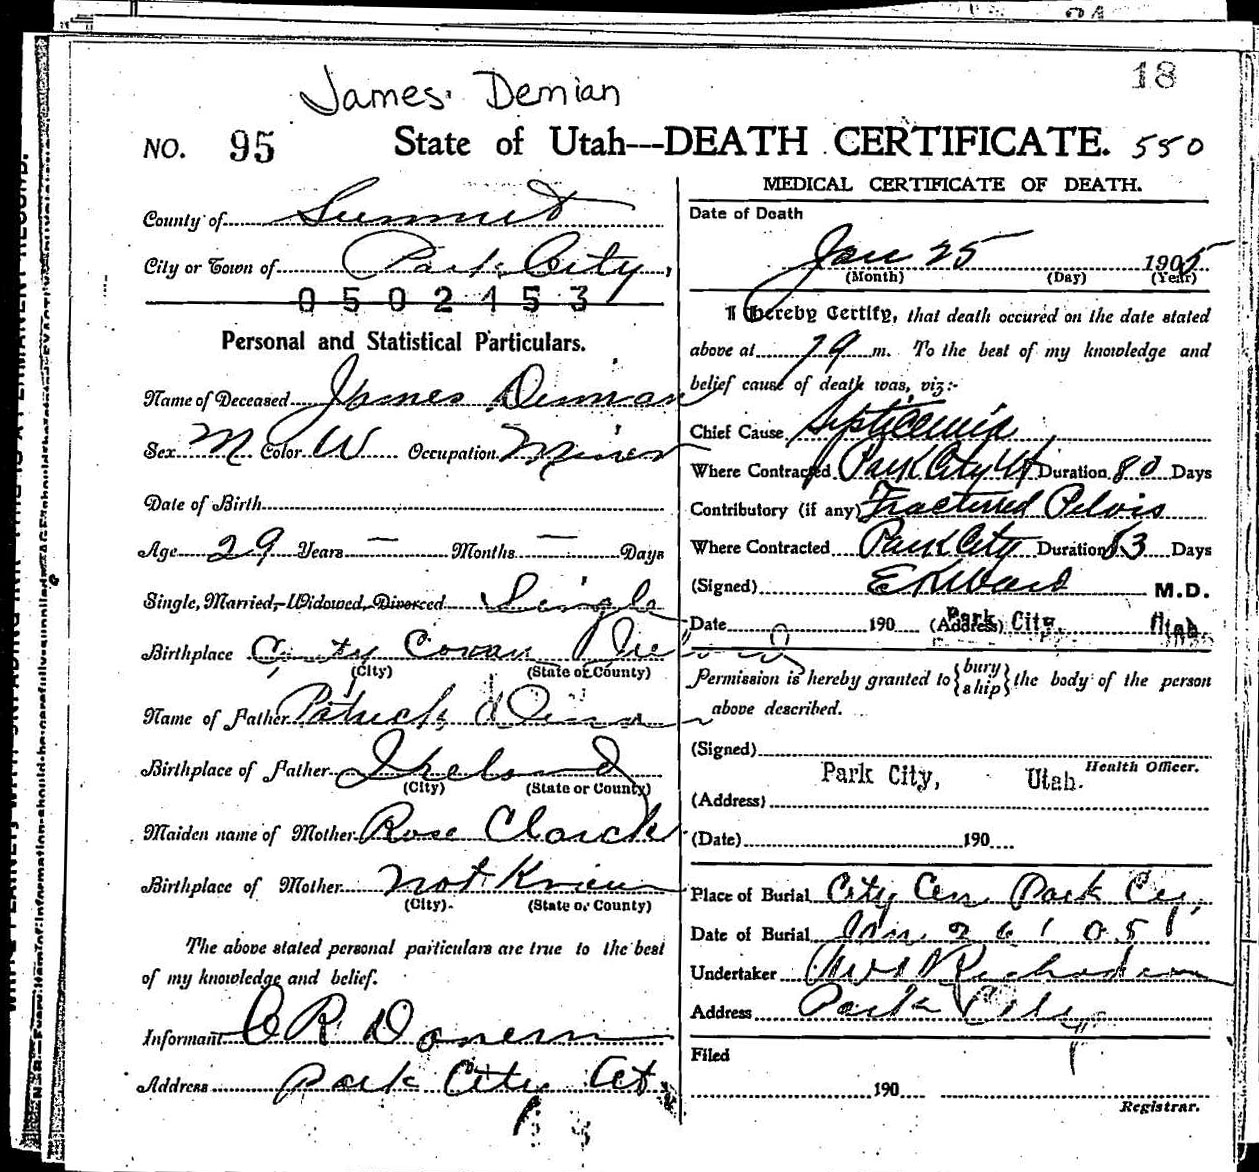 18
James Demian
NO. 95 State of Utah---DEATH CERTIFICATE. 550
County of Summit
City or Town of Park City
0502153
Personal and Statistical Particulars.
Name of Deceased James Dimian
Sex M Color W Occupation Miner
Date of Birth
Age 29 Years — Months — Days
Single, Married, Widowed, Divorced Single
Birthplace County Cowan Ireland
(City) (State or County)
Name of Father Patrick
Birthplace of Father Ireland
(City) (State or County)
Maiden name of Mother Rose Clarck
Birthplace of Mother not Known
(City). (State or County)
The above stated personal particulars are true to the best
of my knowledge and belief.
Informant
Address Park City Ut
MEDICAL CERTIFICATE OF DEATH.
Date of Death
Jan 25 1905
(Month) (Day) (Year)
I hereby Certify, that death occured on the date stated
above at m. To the best of my knowledge and
belief cause of death was, viz:-
Chief Cause Septicemia
Where Contracted Park City Ut Duration 80 Days
Contributory (if any) Fractured Pelvis
Where Contracted Park City Duration 83 Days
(Signed) E K Ward M.D.
Date 190 (Address) Park City, Utah.
Permission is hereby granted to {bury ship} the body of the person
above described.
(Signed)
Health Officer.
Park City, Utah.
(Address)
(Date) 190
Place of Burial City Cem Park City
Date of Burial Jan, 26 1905
Undertaker Richardson
Address Park City
Filed
190
Registrar.